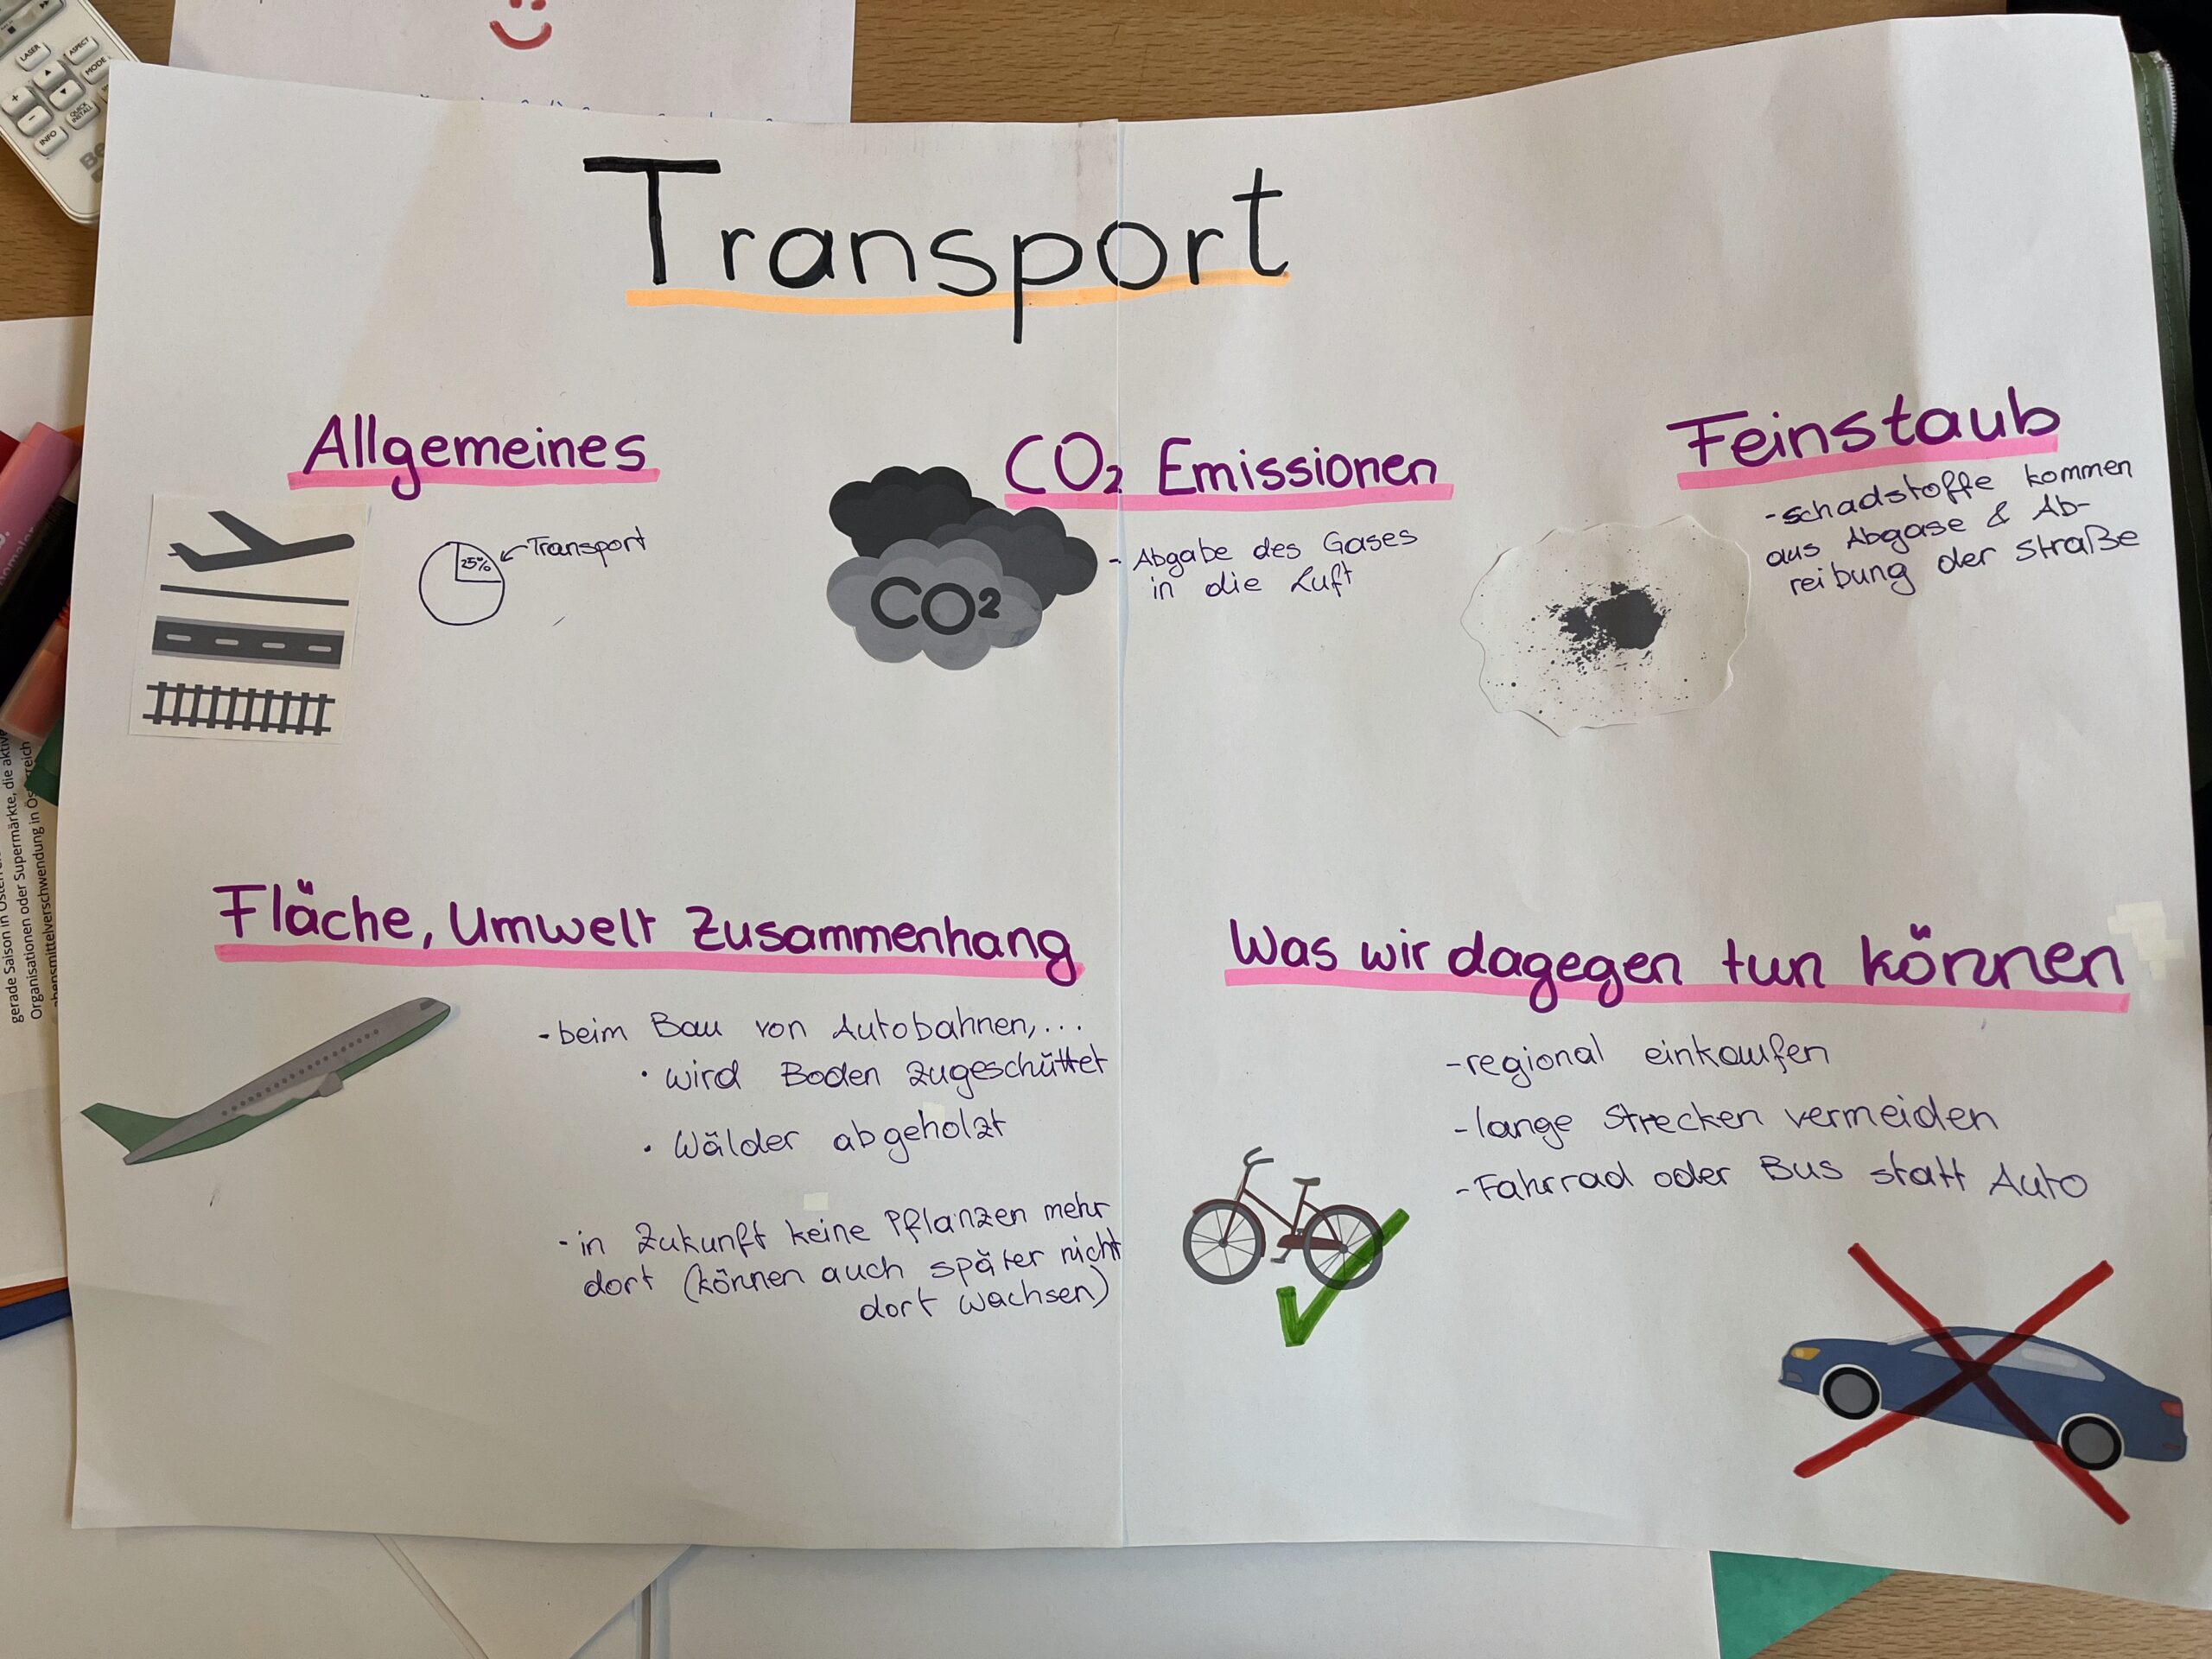 LASER
ASPECT
MODE
QUICK
INSTALL
INFO
Transport
Allgemeines
25%
Transport
CO₂ Emissionen
CO²
- Abgabe des Gases
in die Luft
Feinstaub
- schadstoffe kommen
aus Abgase & Ab-
reibung der straße
Fläche, Umwelt Zusammenhang
- beim Bau von Autobahnen,...
• wird Boden zugeschüttet
• Wälder abgeholzt
- in Zukunft keine Pflanzen mehr
dort (können auch später nicht
dort wachsen)
Was wir dagegen tun können
- regional einkaufen
- lange Strecken vermeiden
- Fahrrad oder Bus statt Auto
gerade Saison in
Organisationen oder Supermärkte, die aktive